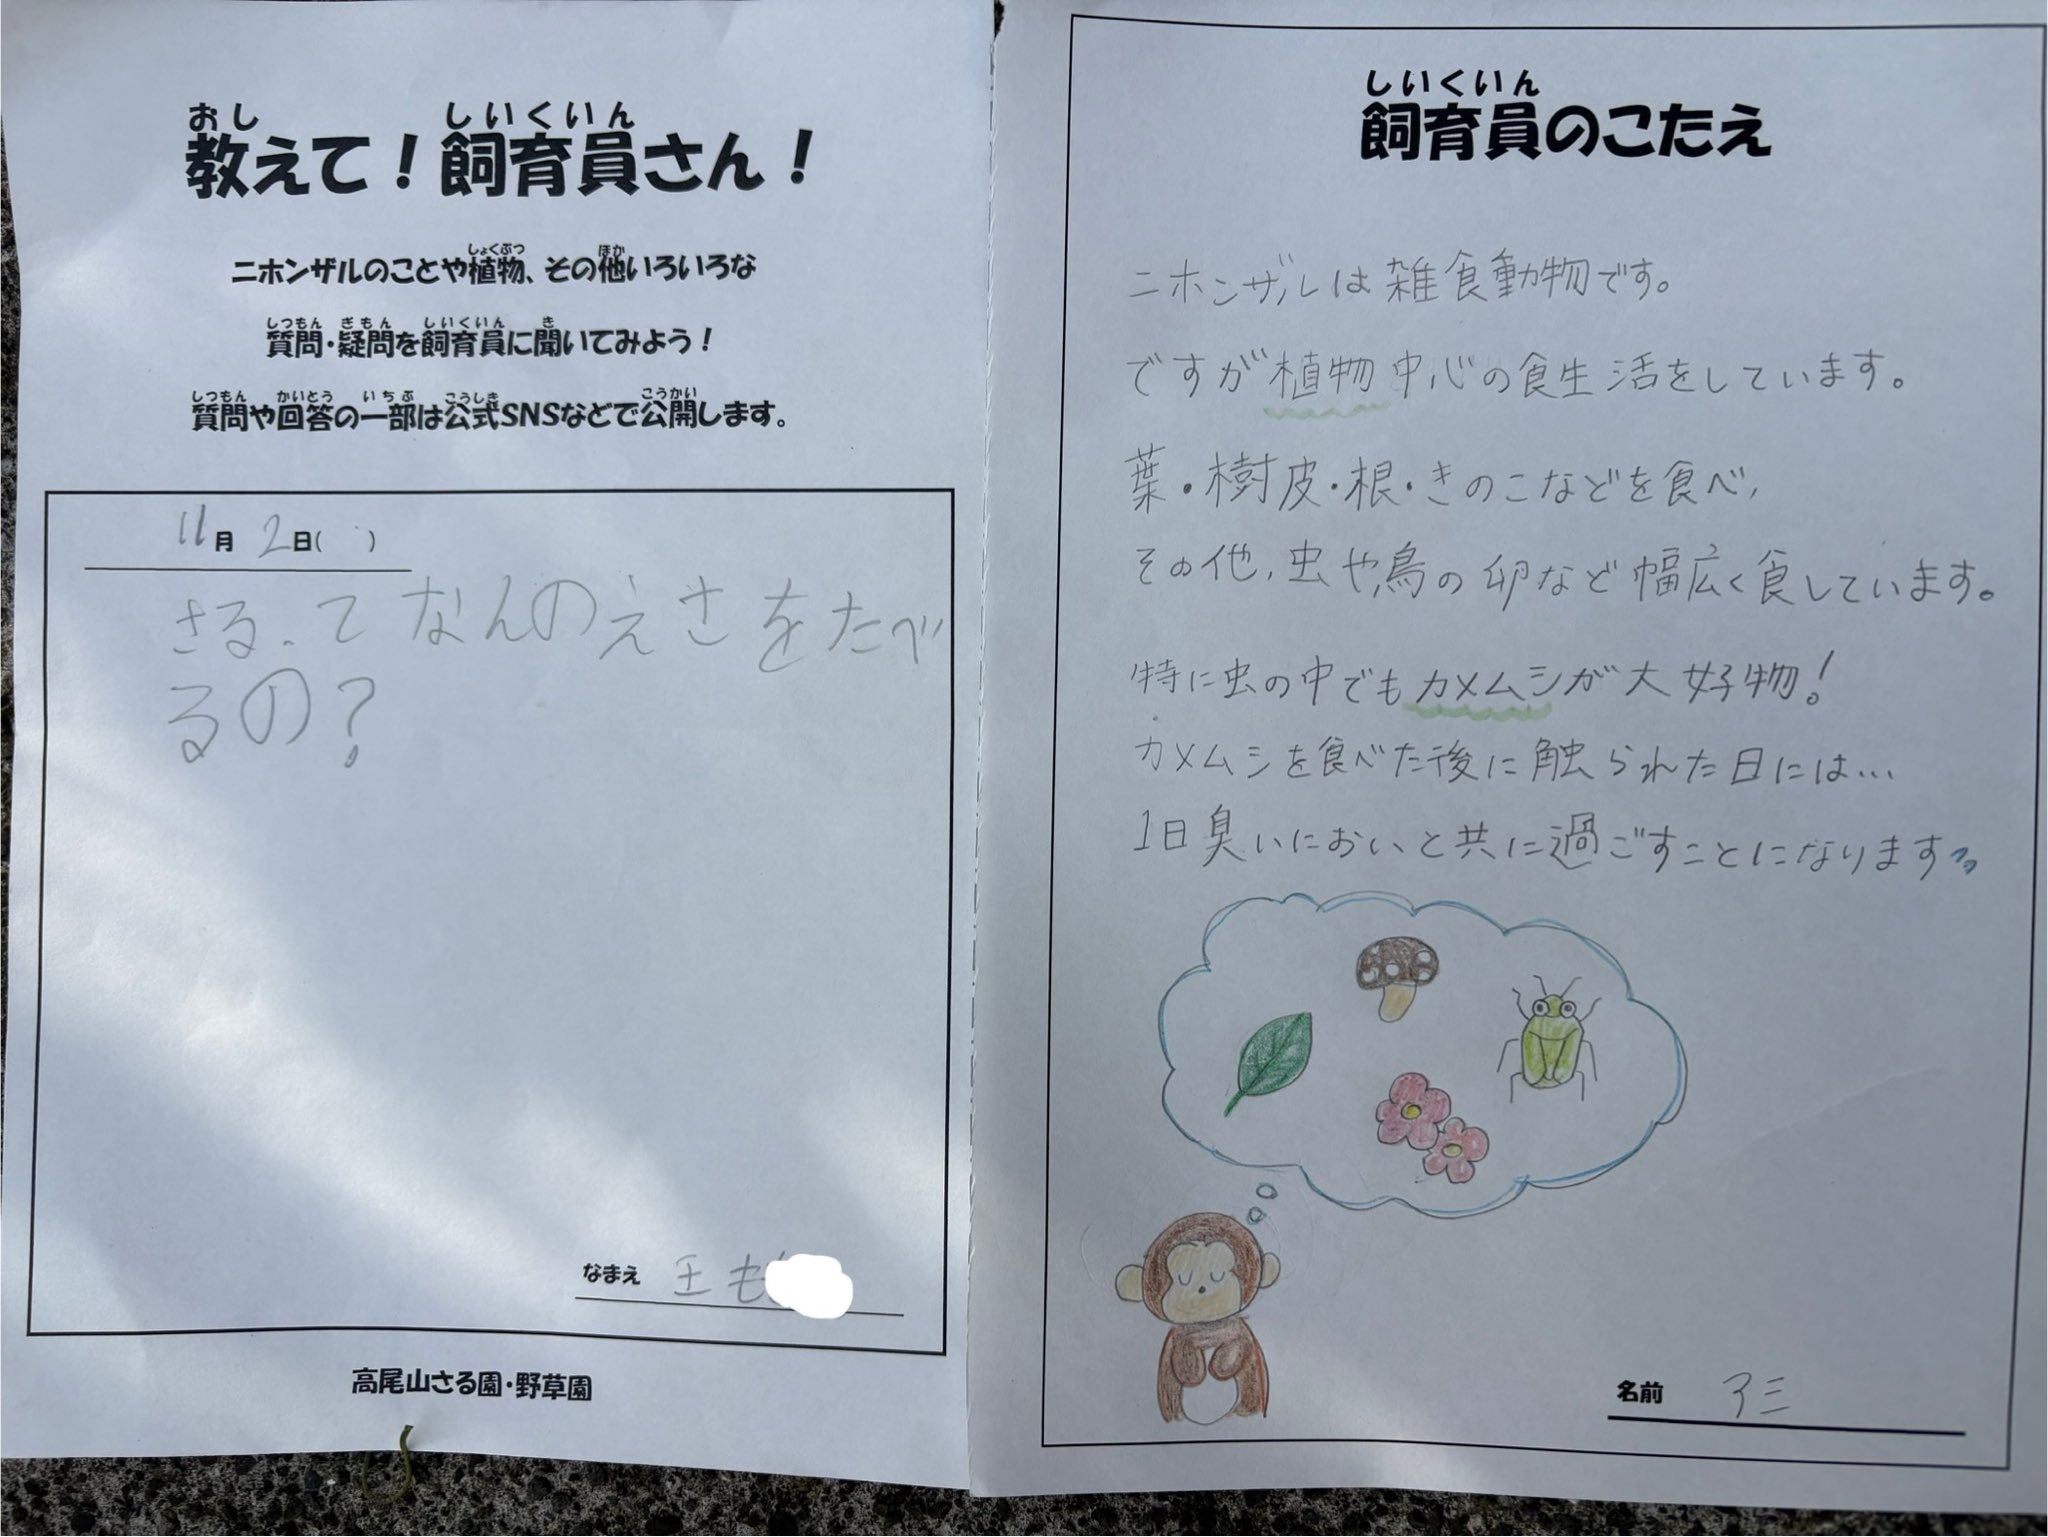 教えて！飼育員さん！
ニホンザルのことや植物、その他いろいろな
質問・疑問を飼育員に聞いてみよう！
質問や回答の一部は公式SNSなどで公開します。
11月2日( )
さるってなんのえさをたべ
るの？
なまえ 王も
高尾山さる園・野草園
飼育員のこたえ
ニホンザルは雑食動物です。
ですが植物中心の食生活をしています。
葉・樹皮・根・きのこなどを食べ、
その他、虫や鳥の卵など幅広く食しています。
特に虫の中でもカメムシが大好物！
カメムシを食べた後に触られた日には…
1日臭いにおいと共に過ごすことになります
名前 アミ